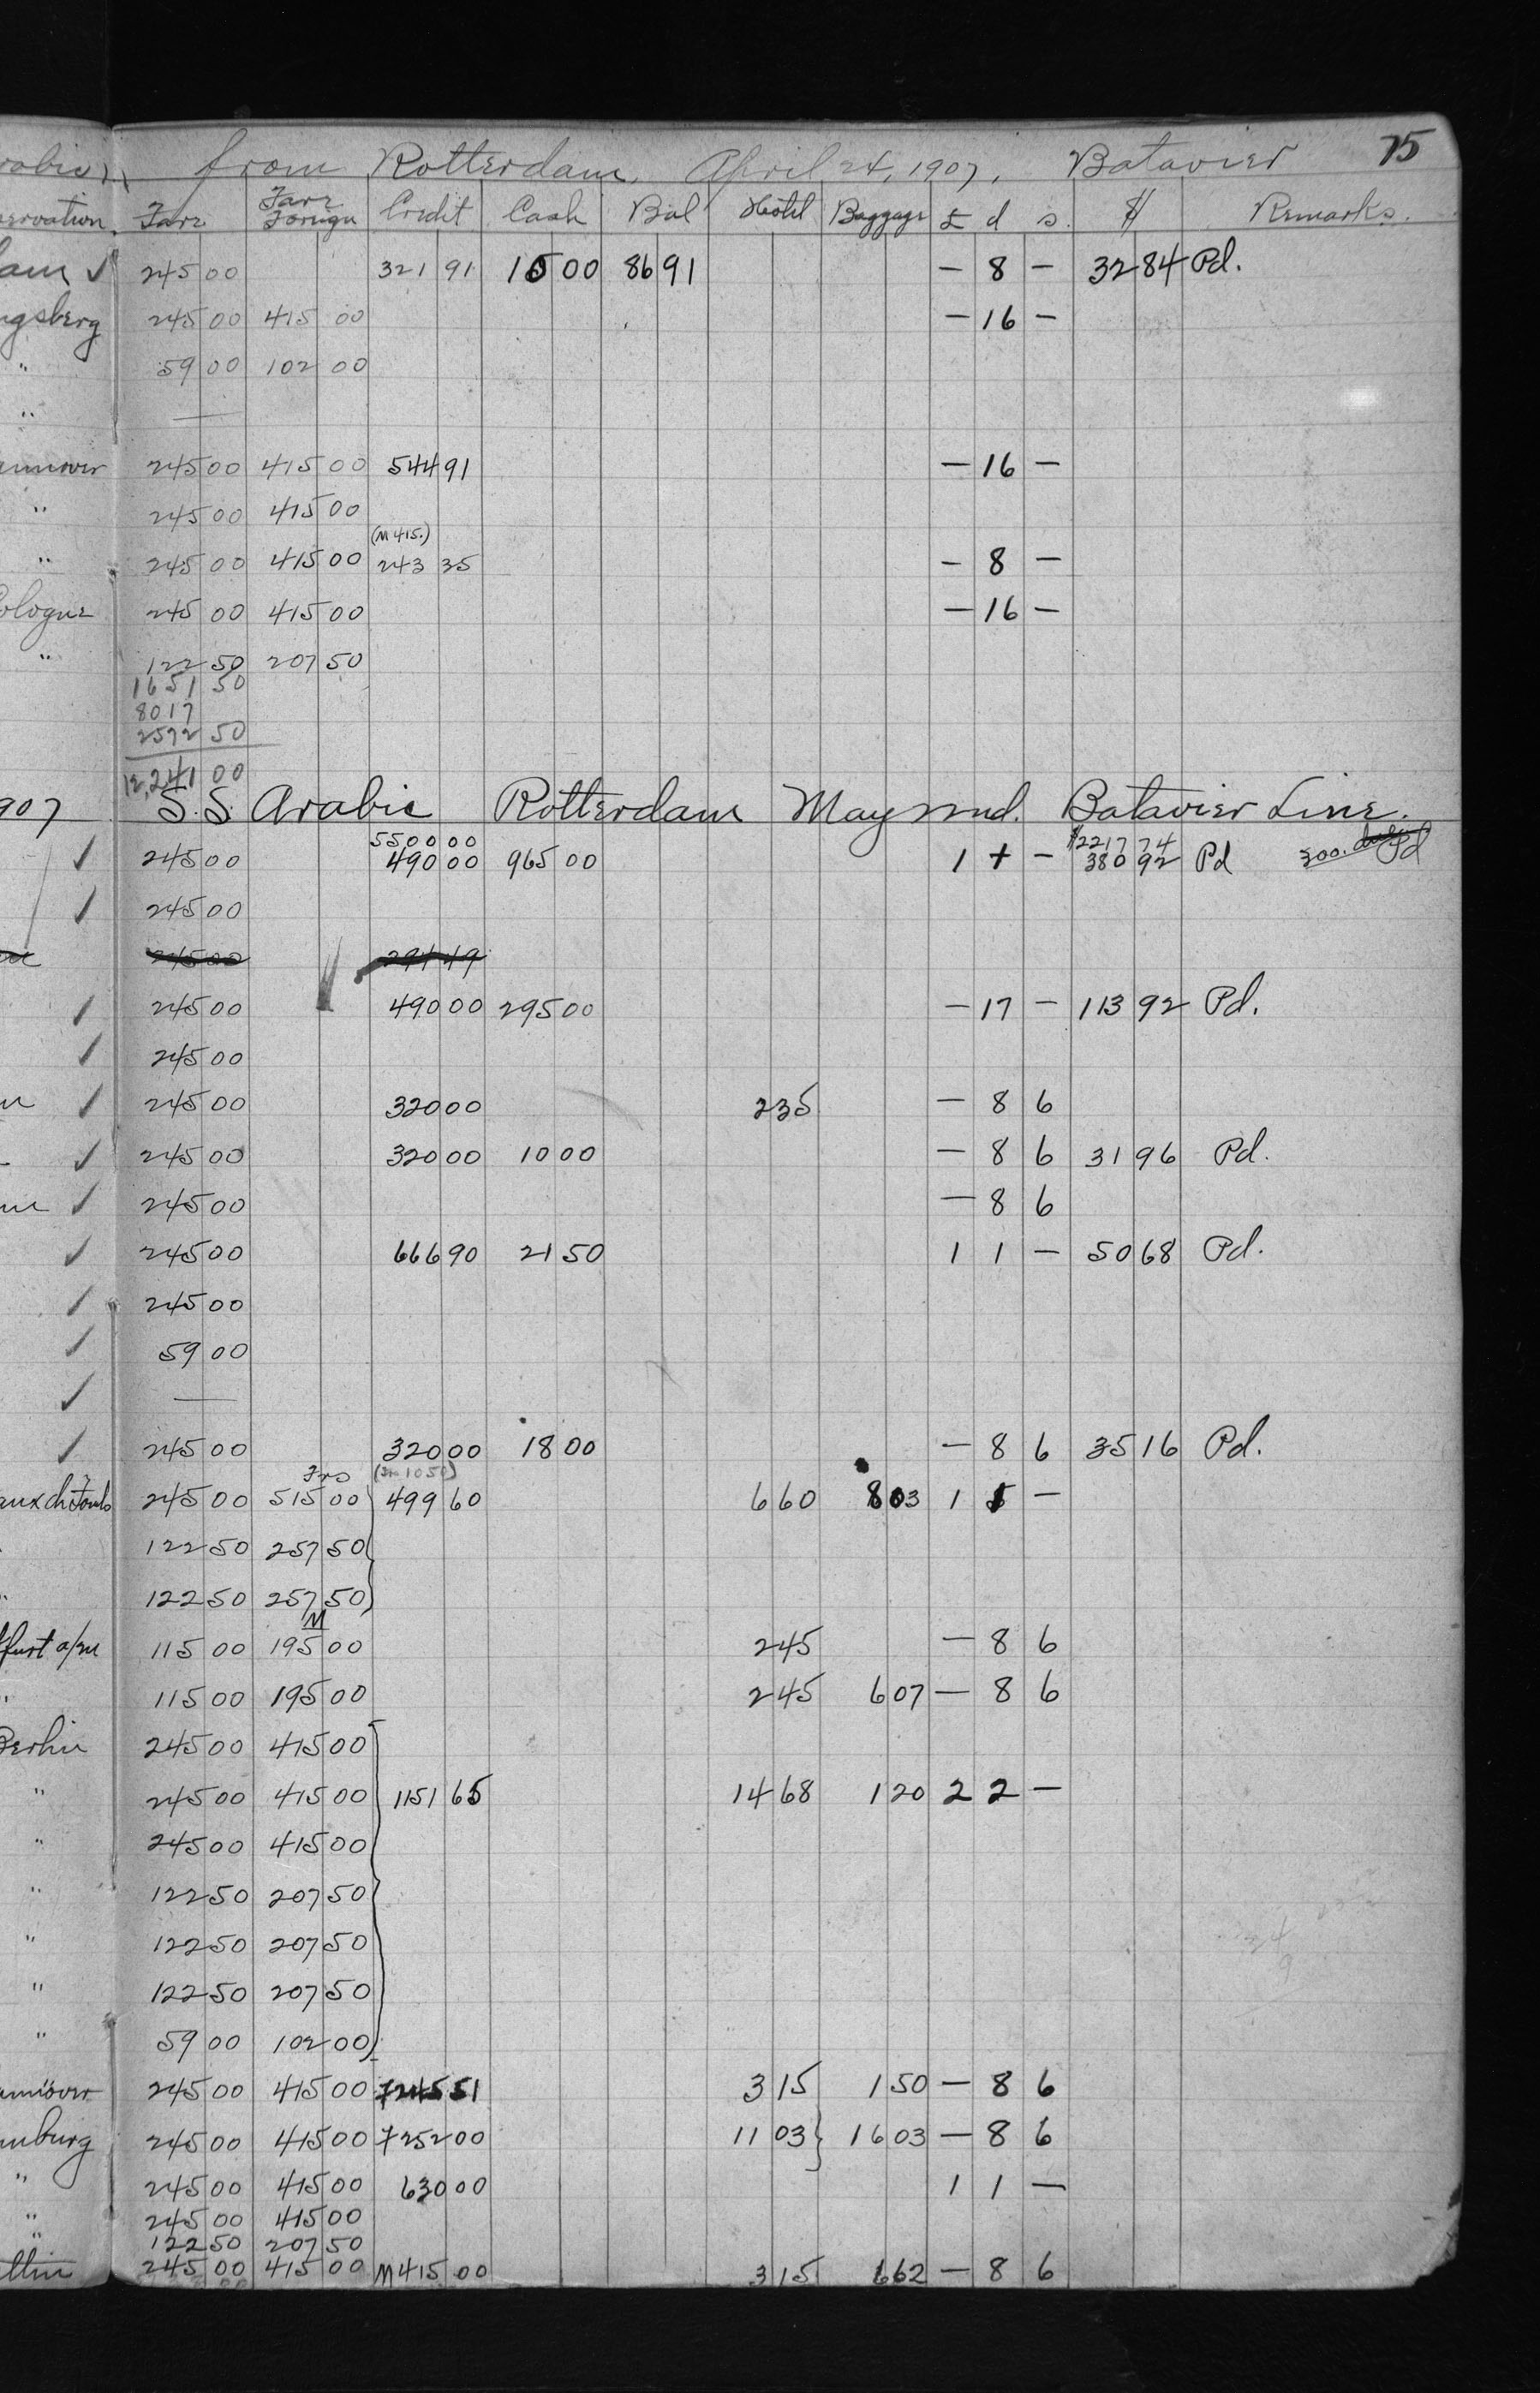 from Rotterdam, April 24, 1907, Batavier 75
Fare Fare Foreign Credit Cash Bal Hotel Baggage £ d s. $ Remarks.
✓ 245 00 321 91 15 00 86 91 — 8 — 32 84 Pd.
245 00 415 00 — 16 —
" 59 00 102 00
" —
245 00 415 00 544 91 — 16 —
" 245 00 415 00
(M 415.)
" 245 00 415 00 243 35 — 8 —
Cologne 245 00 415 00 — 16 —
" 122 50 207 50
1651 50
8017
2572 50
12,241 00
1907 S.S. Arabic Rotterdam May 2nd. Batavier Line.
5500 00 $2217 74
✓ 245 00 490 00 965 00 1 + — 380 92 Pd 300. due Pd
✓ 245 00
245 00 294 49
✓ 245 00 490 00 295 00 — 17 — 113 92 Pd.
✓ 245 00
✓ 245 00 320 00 2 35 — 8 6
✓ 245 00 320 00 10 00 — 8 6 31 96 Pd.
✓ 245 00 — 8 6
✓ 245 00 666 90 21 50 1 1 — 50 68 Pd.
✓ 245 00
✓ 59 00
✓ —
✓ 245 00 320 00 18 00 — 8 6 35 16 Pd.
Frs
245 00 515 00 499 60 6 60 8 03 1 —
122 50 257 50
" 122 50 257 50
M
a/m 115 00 195 00 2 45 — 8 6
" 115 00 195 00 2 45 6 07 — 8 6
Berlin 245 00 415 00
" 245 00 415 00 1151 65 14 68 1 20 2 2 —
" 245 00 415 00
" 122 50 207 50
" 122 50 207 50
" 122 50 207 50
" 59 00 102 00
245 00 415 00 7245 51 3 15 1 50 — 8 6
245 00 415 00 7252 00 11 03 16 03 — 8 6
" 245 00 415 00 630 00 1 1 —
" 245 00 415 00
" 122 50 207 50
245 00 415 00 M 415 00 3 15 6 62 — 8 6